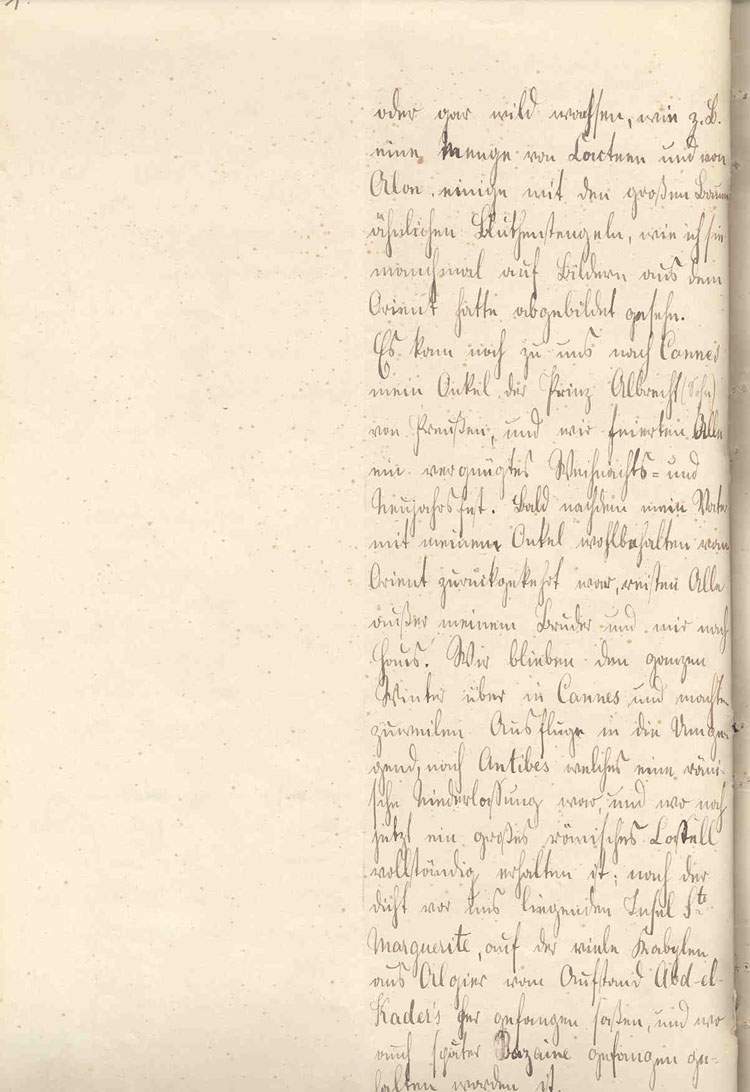 oder gar wild wachsen, wie z. B.
eine Menge von Cacteen und von
Aloe, einige mit den großen Baum
ähnlichen Blüthenstengeln, wie ich sie
manchmal auf Bildern aus dem
Orient hatte abgebildet gesehn.
Es kam noch zu uns nach Cannes
mein Onkel der Prinz Albrecht (Sohn)
von Preußen, und wir feierten Alle
ein vergnügtes Weihnachts= und
Neujahrsfest. Bald nachdem mein Vater
mit meinem Onkel wohlbehalten vom
Orient zurückgekehrt war, reisten Alle
außer meinem Bruder und mir nach
Haus. Wir blieben den ganzen
Winter über in Cannes und machten
zuweilen Ausfluge in die Umge-
gend, nach Antibes welches eine römi-
sche Niederlassung war, und wo noch
jetzt ein großes römisches Castell
vollständig erhalten ist; nach der
dicht vor uns liegenden Insel Ste
Marguerite, auf der viele Kabylen
aus Algier vom Aufstand Abd-el-
Kader's her gefangen saßen, und wo
auch später Bazaine gefangen ge-
halten worden ist.